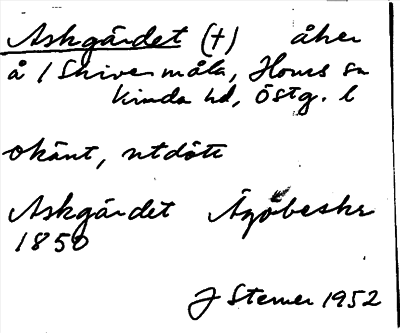 Askgärdet (+) åker
å 1 Skivermåla, Horns sn
Kinda hd, Östg. l
okänt, utdött
Askgärdet Ägobeskr
1850
J Sterner 1952